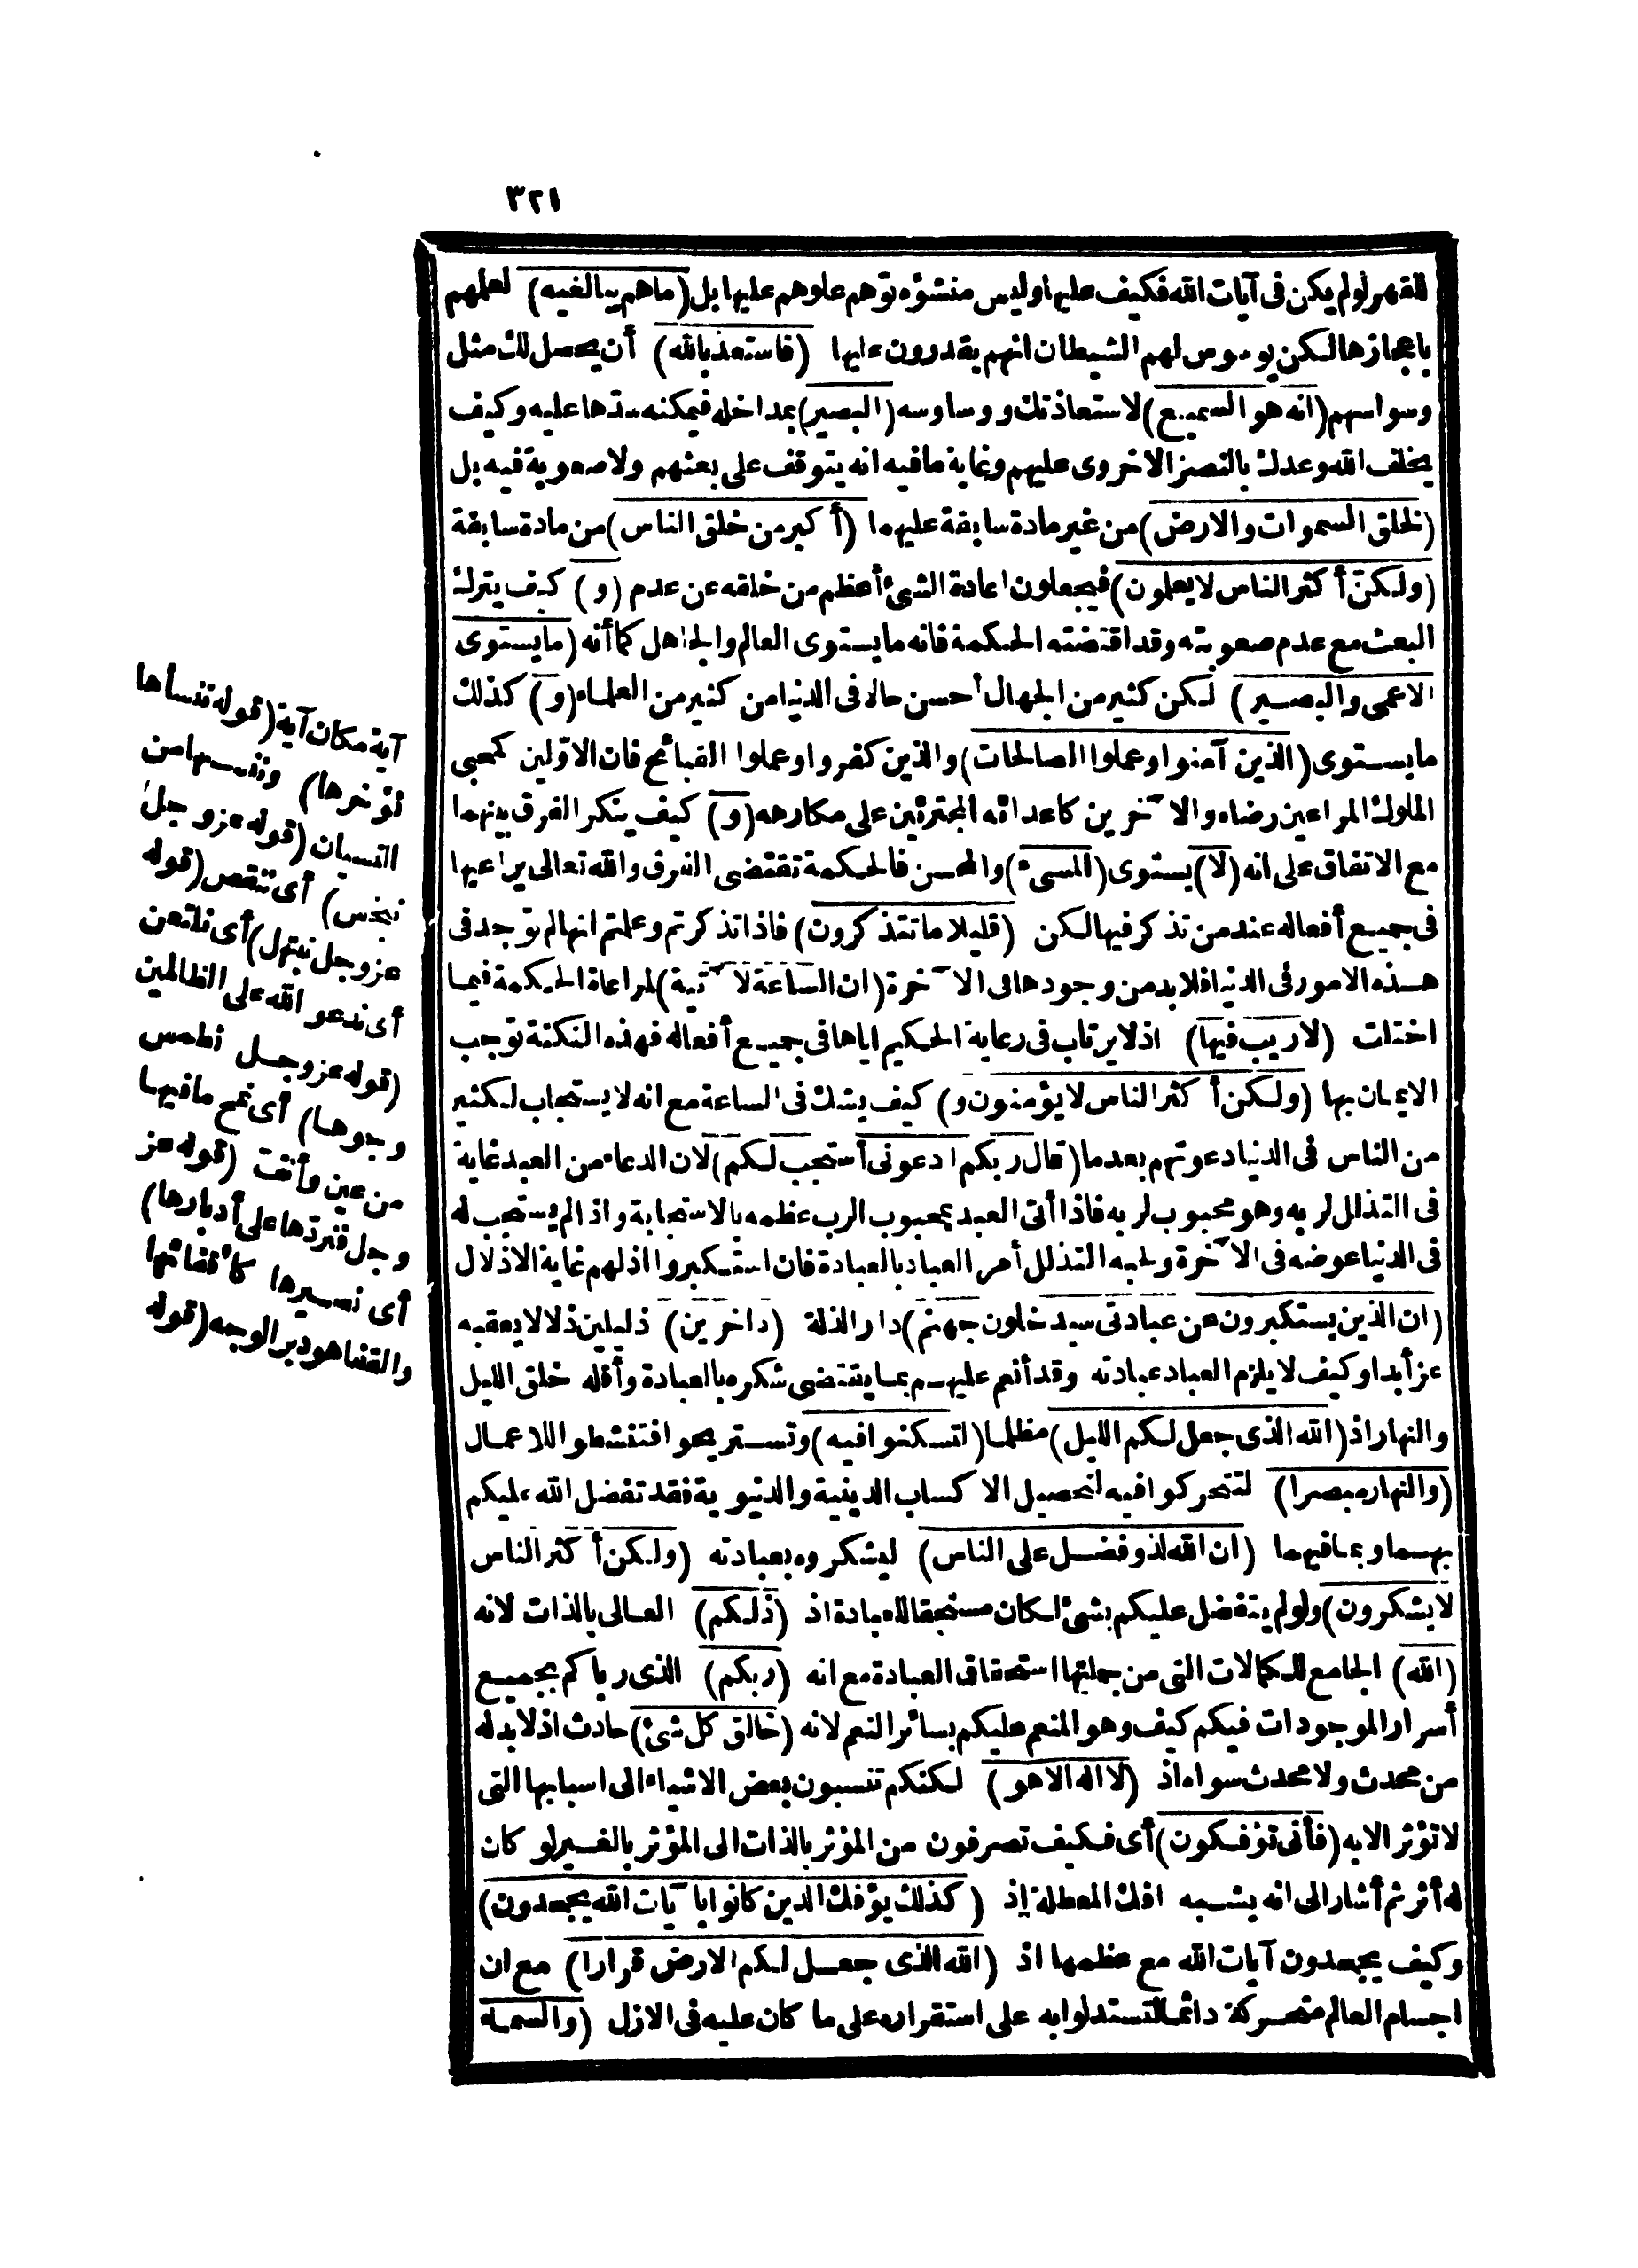 ٣٢١
للقهر لو لم يكن فى آيات الله فكيف عليها وليس منشؤه توهم علوهم عليها بل (ماهم ببالغيه) لعلمهم
باعجازها لكن يوسوس لهم الشيطان انهم يقدرون عليها (فاستعذ بالله) أن يحصل لك مثل
وسواسهم (انه هو السميع) لاستعاذتك ووساوسه (البصير) بمداخله فيمكنه سدها عليه وكيف
يخلف الله وعدك بالنصر الاخروى عليهم وغاية ما فيه انه يتوقف على بعثهم ولا صعوبة فيه بل
(لخلق السموات والارض) من غير مادة سابقة عليهما (أكبر من خلق الناس) من مادة سابقة
(ولكن أكثر الناس لا يعلمون) فيجعلون اعادة الشئ أعظم من خلقه عن عدم (و) كيف يترك
البعث مع عدم صعوبته وقد اقتضته الحكمة فانه ما يستوى العالم والجاهل كما أنه (ما يستوى
الاعمى والبصير) لكن كثير من الجهال أحسن حالا فى الدنيا من كثير من العلماء (و) كذلك
ما يستوى (الذين آمنوا وعملوا الصالحات) والذين كفروا وعملوا القبائح فان الاولين كمحبى
الملوك المراعين رضاه والآخرين كاعدائه المجترئين على مكارهه (و) كيف ينكر الفرق بينهما
مع الاتفاق على انه (لا) يستوى (المسىء) والمحسن فالحكمة تقتضى الفرق والله تعالى يراعيها
فى جميع أفعاله عند من تذكر فيها لكن (قليلا ما تتذكرون) فاذا تذكرتم وعلمتم انها لم توجد فى
هذه الامور فى الدنيا فلا بد من وجودها فى الآخرة (ان الساعة لآتية) لمراعاة الحكمة فيما
اختلت (لا ريب فيها) اذ لا يرتاب فى رعاية الحكيم اياها فى جميع أفعاله فهذه النكتة توجب
الايمان بها (ولكن أكثر الناس لا يؤمنون و) كيف يشك فى الساعة مع انه لا يستجاب لكثير
من الناس فى الدنيا دعوتهم بعدما (قال ربكم ادعونى أستجب لكم) لان الدعاء من العبد غاية
فى التذلل لربه وهو محبوب لربه فاذا أتى العبد بمحبوب الرب عظمه بالاستجابة واذ الم يستجب له
فى الدنيا عوضه فى الآخرة ولحبه التذلل أمر العباد بالعبادة فان استكبروا اذلهم غاية الاذلال
(ان الذين يستكبرون عن عبادتى سيدخلون جهنم) دار الذلة (داخرين) ذليلين ذلا لا يعقبه
عز أبدا وكيف لا يلزم العباد عبادته وقد أنعم عليهم بما يقتضى شكره بالعبادة وأقله خلق الليل
والنهار اذ (الله الذى جعل لكم الليل) مظلما (لتسكنوا فيه) وتستريحوا فتنشطوا للاعمال
(والنهار مبصرا) لتتحركوا فيه لتحصيل الاكساب الدينية والدنيوية فقد تفضل الله عليكم
بهما وبما فيهما (ان الله لذو فضل على الناس) ليشكروه بعبادته (ولكن أكثر الناس
لا يشكرون) ولو لم يتفضل عليكم بشئ لكان مستحقا للعبادة اذ (ذلكم) العالى بالذات لانه
(الله) الجامع للكمالات التى من جملتها استحقاق العبادة مع انه (ربكم) الذى رباكم بجميع
أسرار الموجودات فيكم كيف وهو المنعم عليكم بسائر النعم لانه (خالق كل شئ) حادث اذ لا بد له
من محدث ولا محدث سواه اذ (لا اله الا هو) لكنكم تنسبون بعض الاشياء الى اسبابها التى
لا تؤثر الا به (فأنى تؤفكون) أى فكيف تصرفون من المؤثر بالذات الى المؤثر بالغير لو كان
له أثر ثم أشار الى انه يشبه افك المعطلة إذ (كذلك يؤفك الذين كانوا بآيات الله يجحدون)
وكيف يجحدون آيات الله مع عظمها اذ (الله الذى جعل لكم الارض قرارا) مع ان
اجسام العالم متحركة دائما لتستدلوا به على استقراره على ما كان عليه فى الازل (والسماء
آية مكان آية (قوله ننسأها
نؤخرها) وننسها من
النسيان (قوله عز وجل
نبخس) أى ننقص (قوله
عز وجل نبتهل) أى نلتعن
أى ندعو الله على الظالمين
(قوله عز وجل نطمس
وجوها) أى نمح ما فيها
من عين وأنف (قوله عز
وجل فنردها على أدبارها)
أى نصيرها كأقفائها
والقفا هو دبر الوجه (قوله